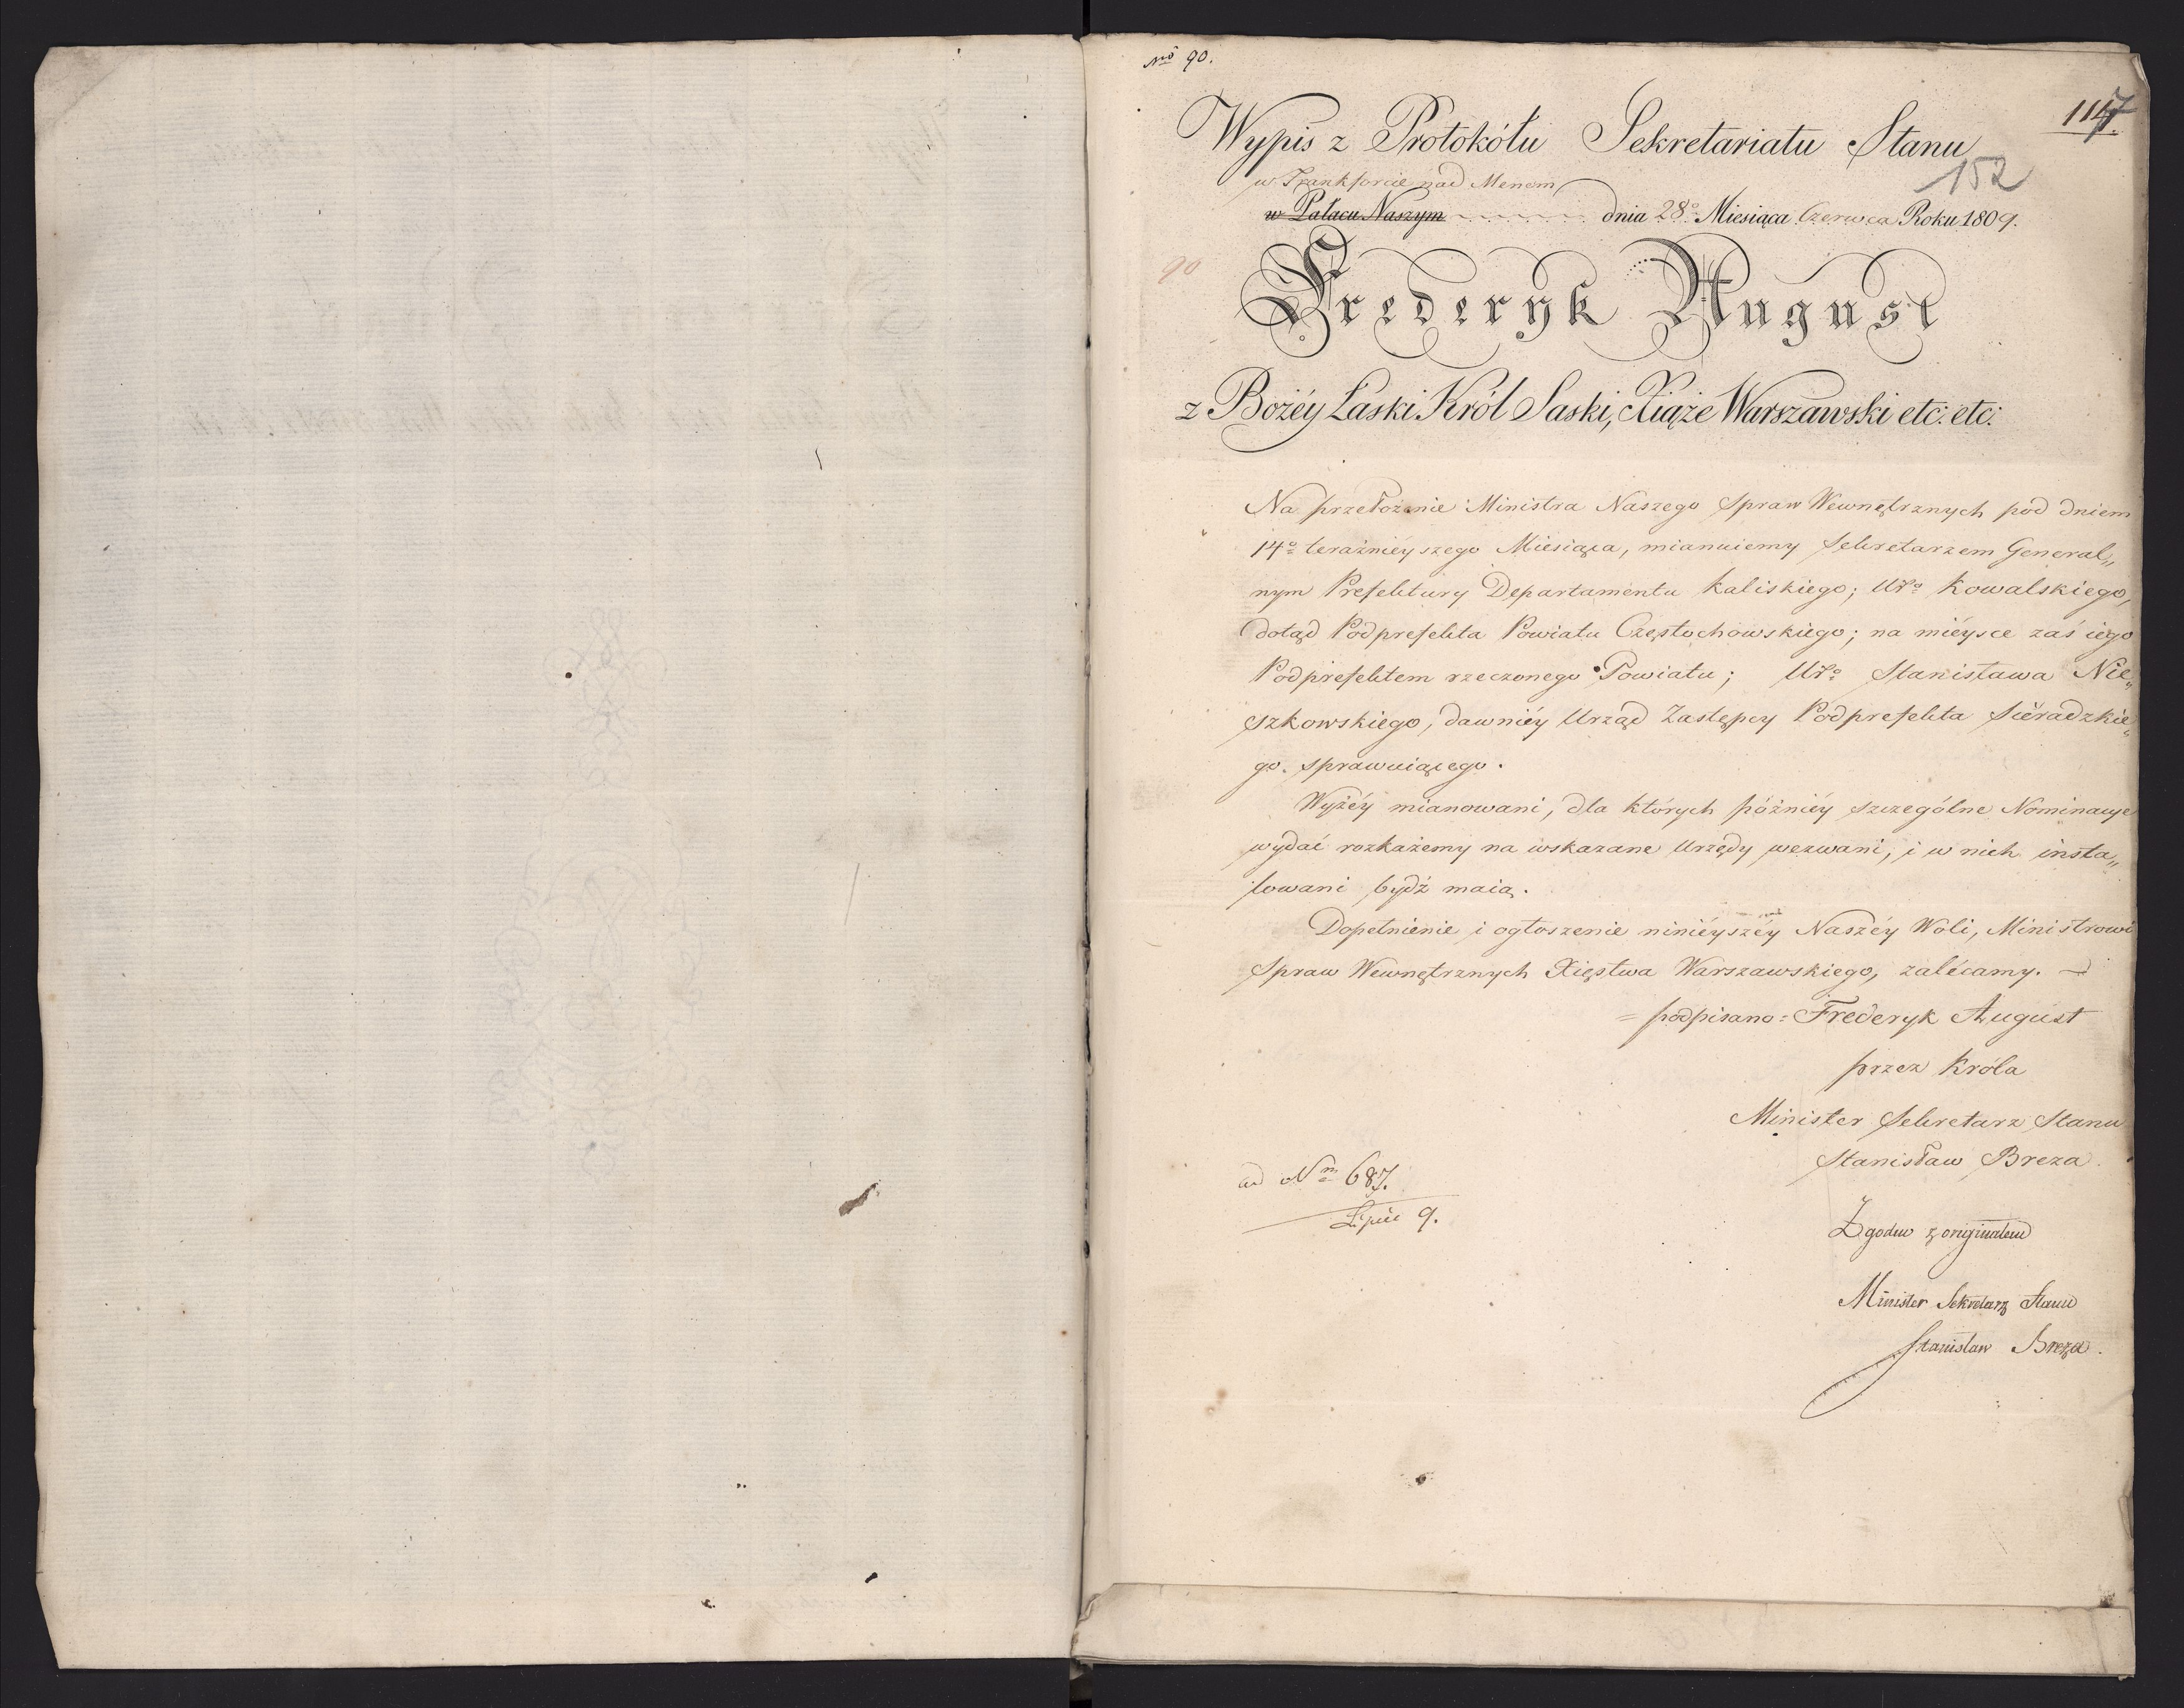 Nro 90.
1147.
Wypis z Protokółu Sekretariatu Stanu
152
w Frankforcie nad Menem
w Pałacu Naszym dnia 28o Miesiąca Czerwca Roku 1809.
90
Frederyk August
z Bożéy Łaski Król Saski, Xiąże Warszawski etc: etc:
Na przełożenie Ministra Naszego Spraw Wewnętrznych pod dniem
14o teraźniéyszego Miesiąca, mianuiemy Sekretarzem General„
nym Prefektury Departamentu Kaliskiego; Uro Kowalskiego,
dotąd Podprefekta Powiatu Częstochowskiego; na miéysce zaś iego
Podprefektem rzeczonego Powiatu; Uro Stanisława Nie„
szkowskiego, dawniéy Urząd Zastępcy Podprefekta Siéradzkie„
go sprawuiącego.
Wyżéy mianowani, dla których późniéy szczególne Nominacye
wydać rozkażemy na wskazane Urzędy wezwani, i w nich insta„
lowani bydź maią.
Dopełnienie i ogłoszenie niniéyszéy Naszéy Woli, Ministrowi
Spraw Wewnętrznych Xięstwa Warszawskiego, zalécamy.
= podpisano = Frederyk August
przez Króla
Minister Sekretarz Stanu
Stanisław Breza.
ad Nm 687.
Lipiec 9.
Zgodno z originałem
Minister Sekretarz Stanu
Stanisław Breza.